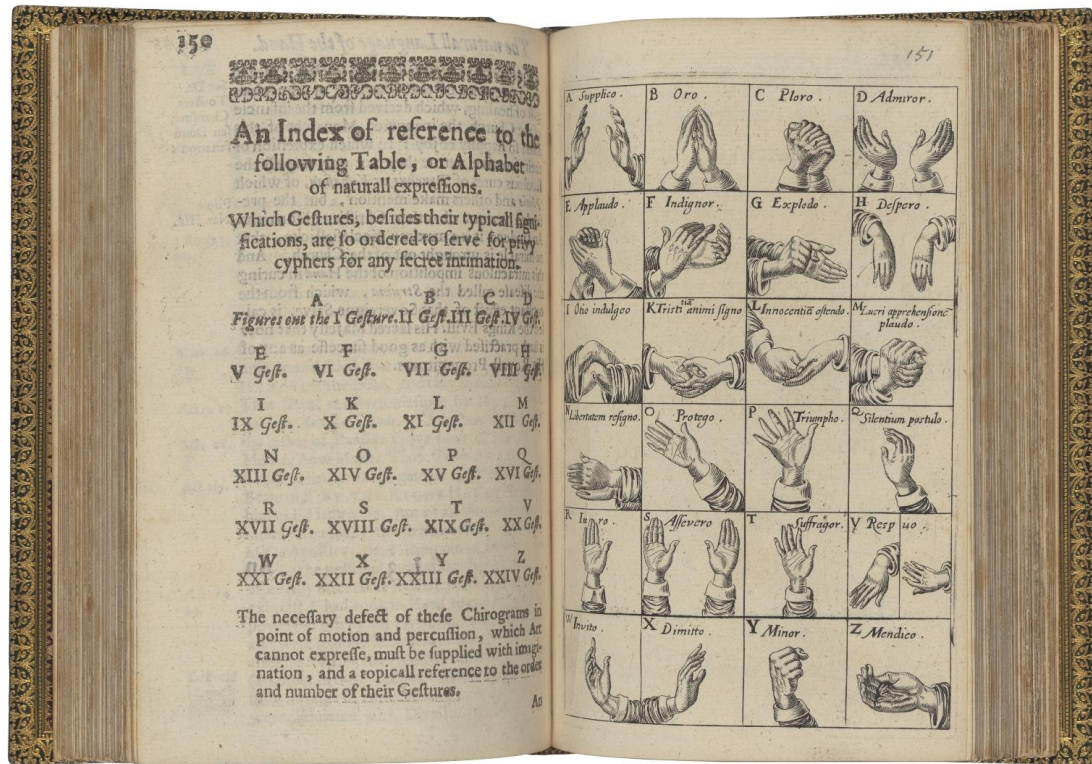 150
An Index of reference to the
following Table, or Alphabet
of naturall expreſſions.
Which Geſtures, beſides their typicall ſigni-
fications, are ſo ordered to ſerve for privy
cyphers for any ſecret intimation.
A B C D
Figures out the I Geſture. II Geſt. III Geſt. IV Geſt.
E F G H
V Geſt. VI Geſt. VII Geſt. VIII Geſt.
I K L M
IX Geſt. X Geſt. XI Geſt. XII Geſt.
N O P Q
XIII Geſt. XIV Geſt. XV Geſt. XVI Geſt.
R S T V
XVII Geſt. XVIII Geſt. XIX Geſt. XX Geſt.
W X Y Z
XXI Geſt. XXII Geſt. XXIII Geſt. XXIV Geſt.
The neceſſary defect of theſe Chirograms in
point of motion and percuſſion, which Art
cannot expreſſe, muſt be ſupplied with imagi-
nation, and a topicall reference to the order
and number of their Geſtures.
An
151
A Supplico. B Oro. C Ploro. D Admiror.
E Applaudo. F Indignor. G Explodo. H Deſpero.
I Otio indulgeo K Triſtitiã animi ſigno L Innocentiã oſtendo. M Lucri apprehenſionẽ
plaudo.
N Libertatem reſigno. O Protego. P Triumpho. Q Silentium poſtulo.
R Iuro. S Aſſevero T Suffragor. V Reſpuo.
W Invito. X Dimitto. Y Minor. Z Mendico.